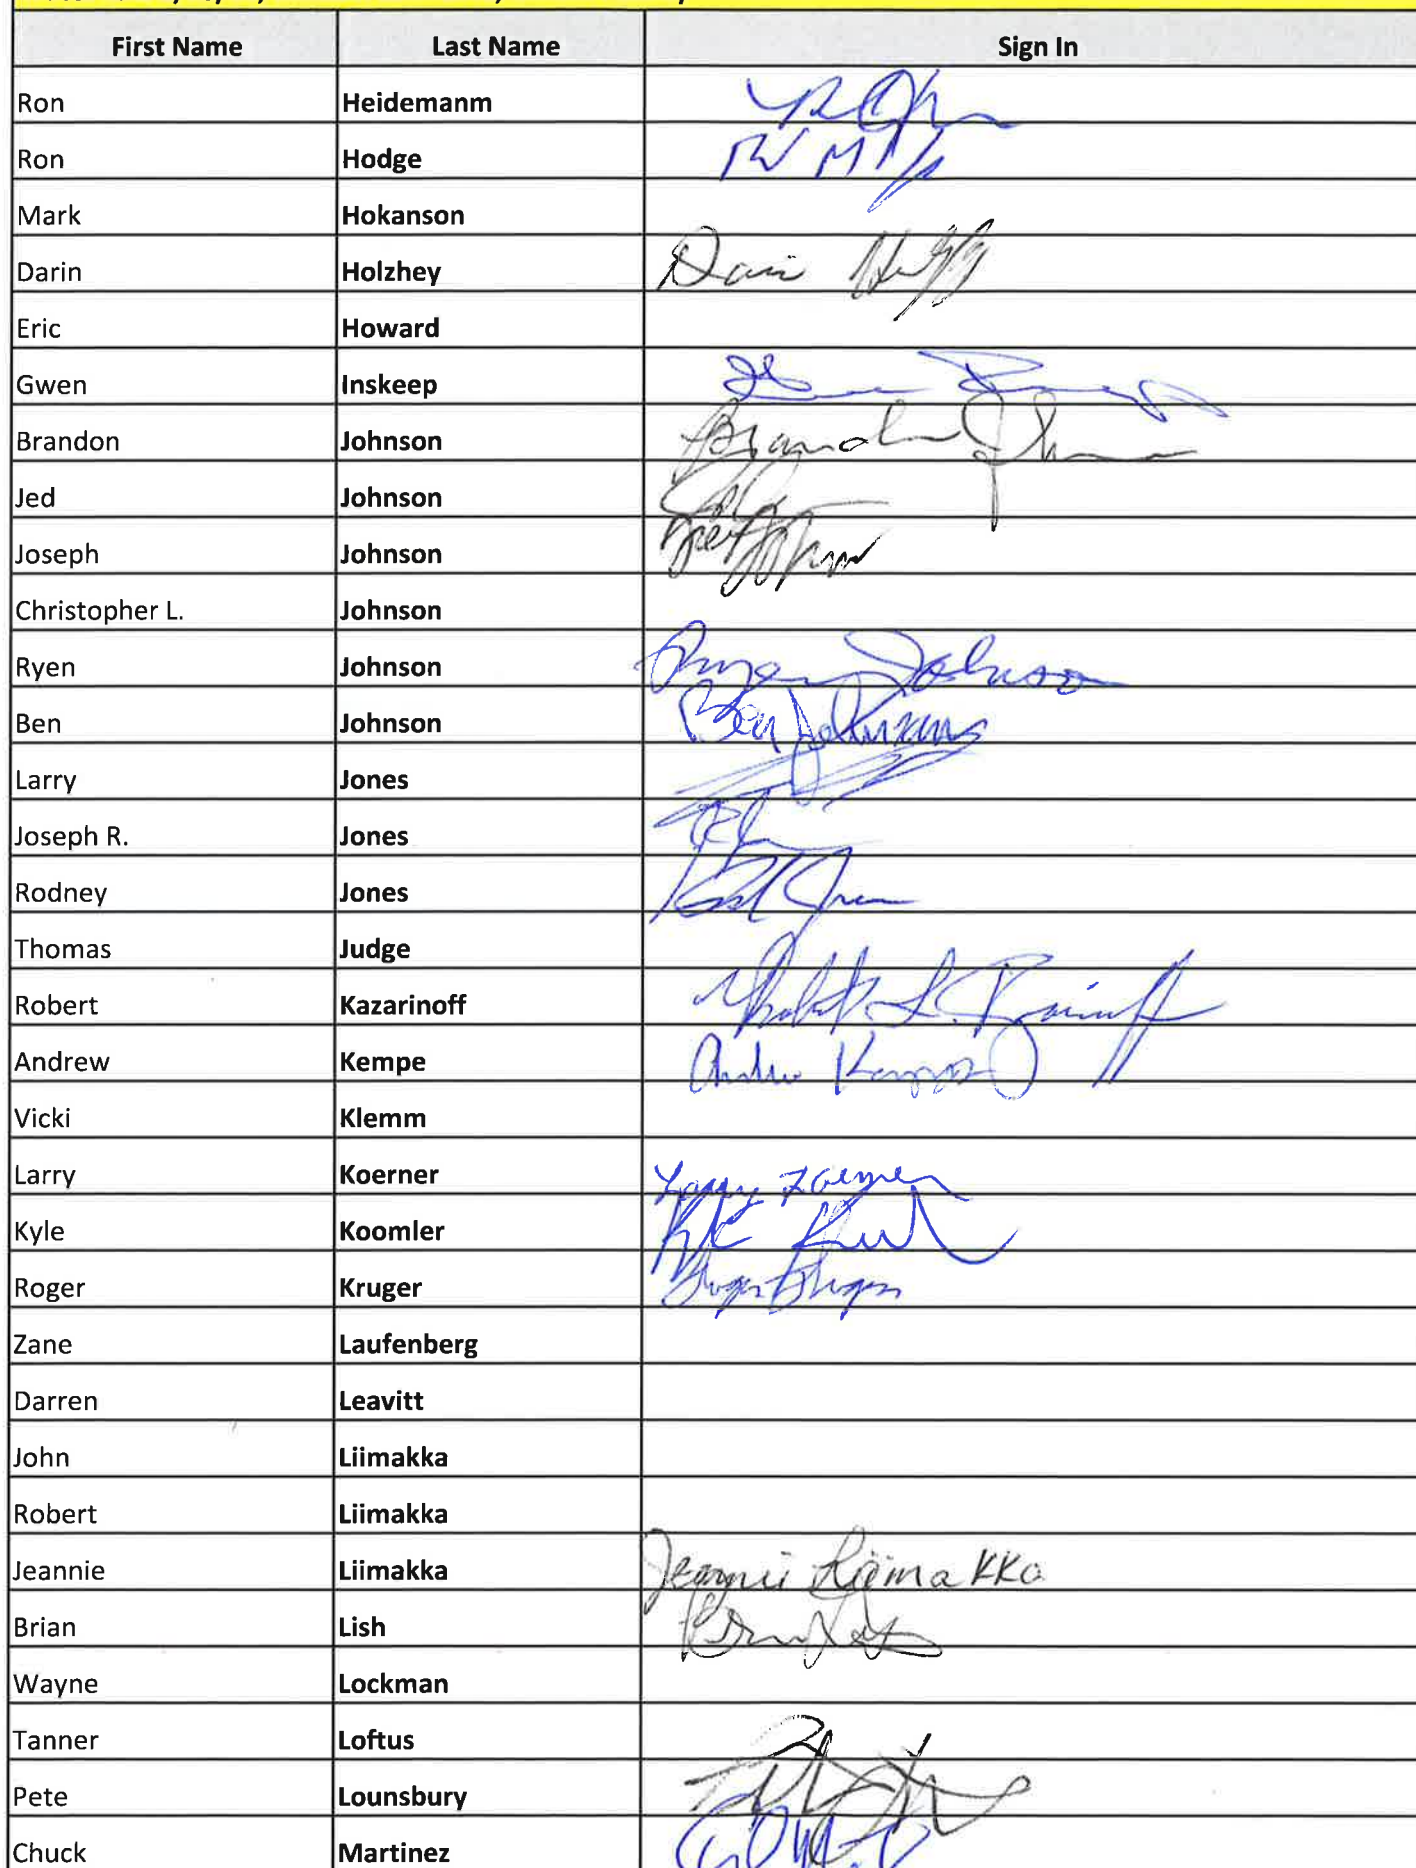 First Name Last Name Sign In
Ron Heidemanm
Ron Hodge
Mark Hokanson
Darin Holzhey
Eric Howard
Gwen Inskeep
Brandon Johnson
Jed Johnson
Joseph Johnson
Christopher L. Johnson
Ryen Johnson Ryen Johnson
Ben Johnson Ben
Larry Jones
Joseph R. Jones
Rodney Jones
Thomas Judge
Robert Kazarinoff
Andrew Kempe
Vicki Klemm
Larry Koerner Larry Koerner
Kyle Koomler
Roger Kruger Roger Kruger
Zane Laufenberg
Darren Leavitt
John Liimakka
Robert Liimakka
Jeannie Liimakka Jeannie Liimakka
Brian Lish
Wayne Lockman
Tanner Loftus
Pete Lounsbury
Chuck Martinez